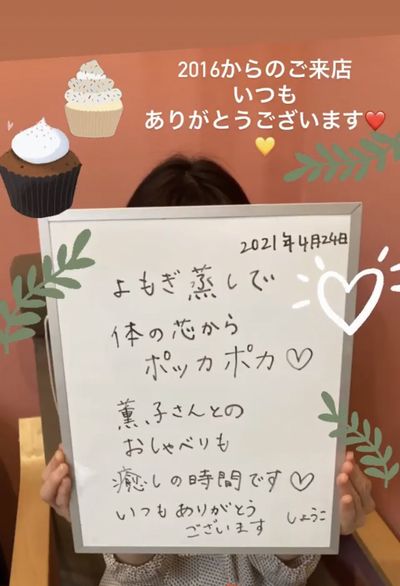 2016からのご来店
いつも
ありがとうございます❤️
💛
2021年4月24日
よもぎ蒸しで
体の芯から
ポッカポカ♡
薫子さんとの
おしゃべりも
癒しの時間です♡
いつもありがとう
ございます
しょうこ